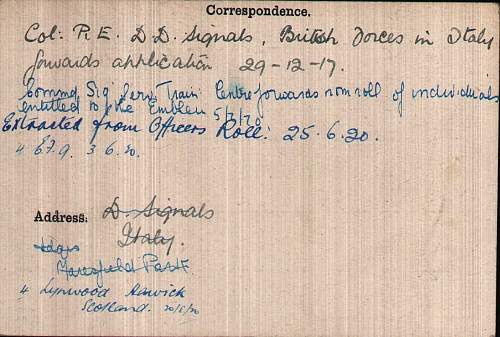 Correspondence.
Col: R.E. D.D. Signals, British Forces in Italy
forwards application 29-12-17.
Commg Sig Serv: Train: Centre forwards nom roll of individuals
entitled to the Emblem 5/7/20
Extracted from Officers Roll: 25.6.20.
4 3.6.20.
Address: D. Signals
Italy.
Hdqrs
Maresfield Park
4 Lynwood Hawick
Scotland. 20/5/20